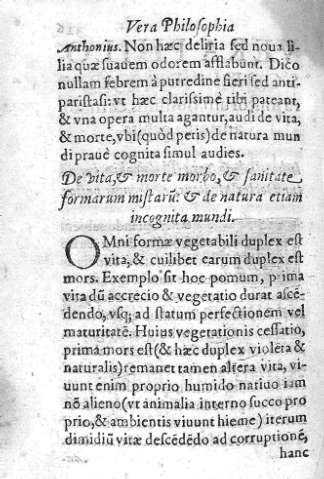 Vera Philosophia
Anthonius. Non hæc deliria sed noua li-
lia quæ suauem odorem afflabunt. Dico
nullam febrem à putredine fieri sed anti-
paristasi: vt hæc clarissimè tibi pateant,
& vna opera multa agantur, audi de vita,
& morte, vbi (quòd petis) de natura mun
di prauè cognita simul audies.
De vita, & morte morbo, & sanitate
formarum mistarũ: & de natura etiam
incognita mundi.
OMni formæ vegetabili duplex est
vita, & cuilibet earum duplex est
mors. Exemplo sit hoc pomum, prima
vita dũ accrecio & vegetatio durat ascẽ-
dendo, vsq; ad statum perfectionem vel
maturitatẽ. Huius vegetationis cessatio,
prima mors est (& hæc duplex violẽta &
naturalis) remanet tamen altera vita, vi-
uunt enim proprio humido natiuo iam
nõ alieno (vt animalia interno succo pro
prio, & ambientis viuunt hieme) iterum
dimidiũ vitæ descẽdẽdo ad corruptionẽ,
hanc